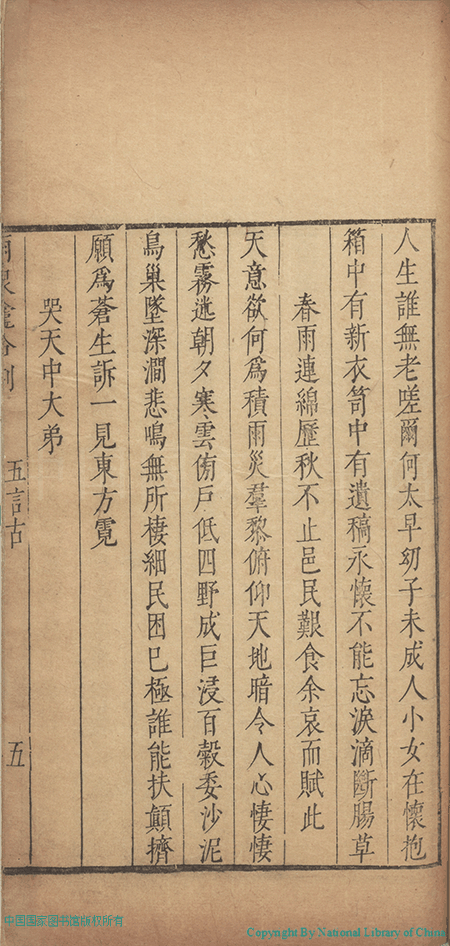 人生誰無老嗟爾何太早幼子未成人小女在懷抱
箱中有新衣笥中有遺稿永懷不能忘淚滴斷腸草
春雨連綿歷秋不止邑民艱食余哀而賦此
天意欲何為積雨災羣黎俯仰天地暗令人心悽悽
愁霧迷朝夕寒雲侑戶低四野成巨浸百穀委沙泥
鳥巢墜深澗悲鳴無所棲細民困已極誰能扶顛擠
願為蒼生訴一見東方霓
哭天中大弟
五言古
五
中国国家图书馆版权所有
Copyright By National Library of China